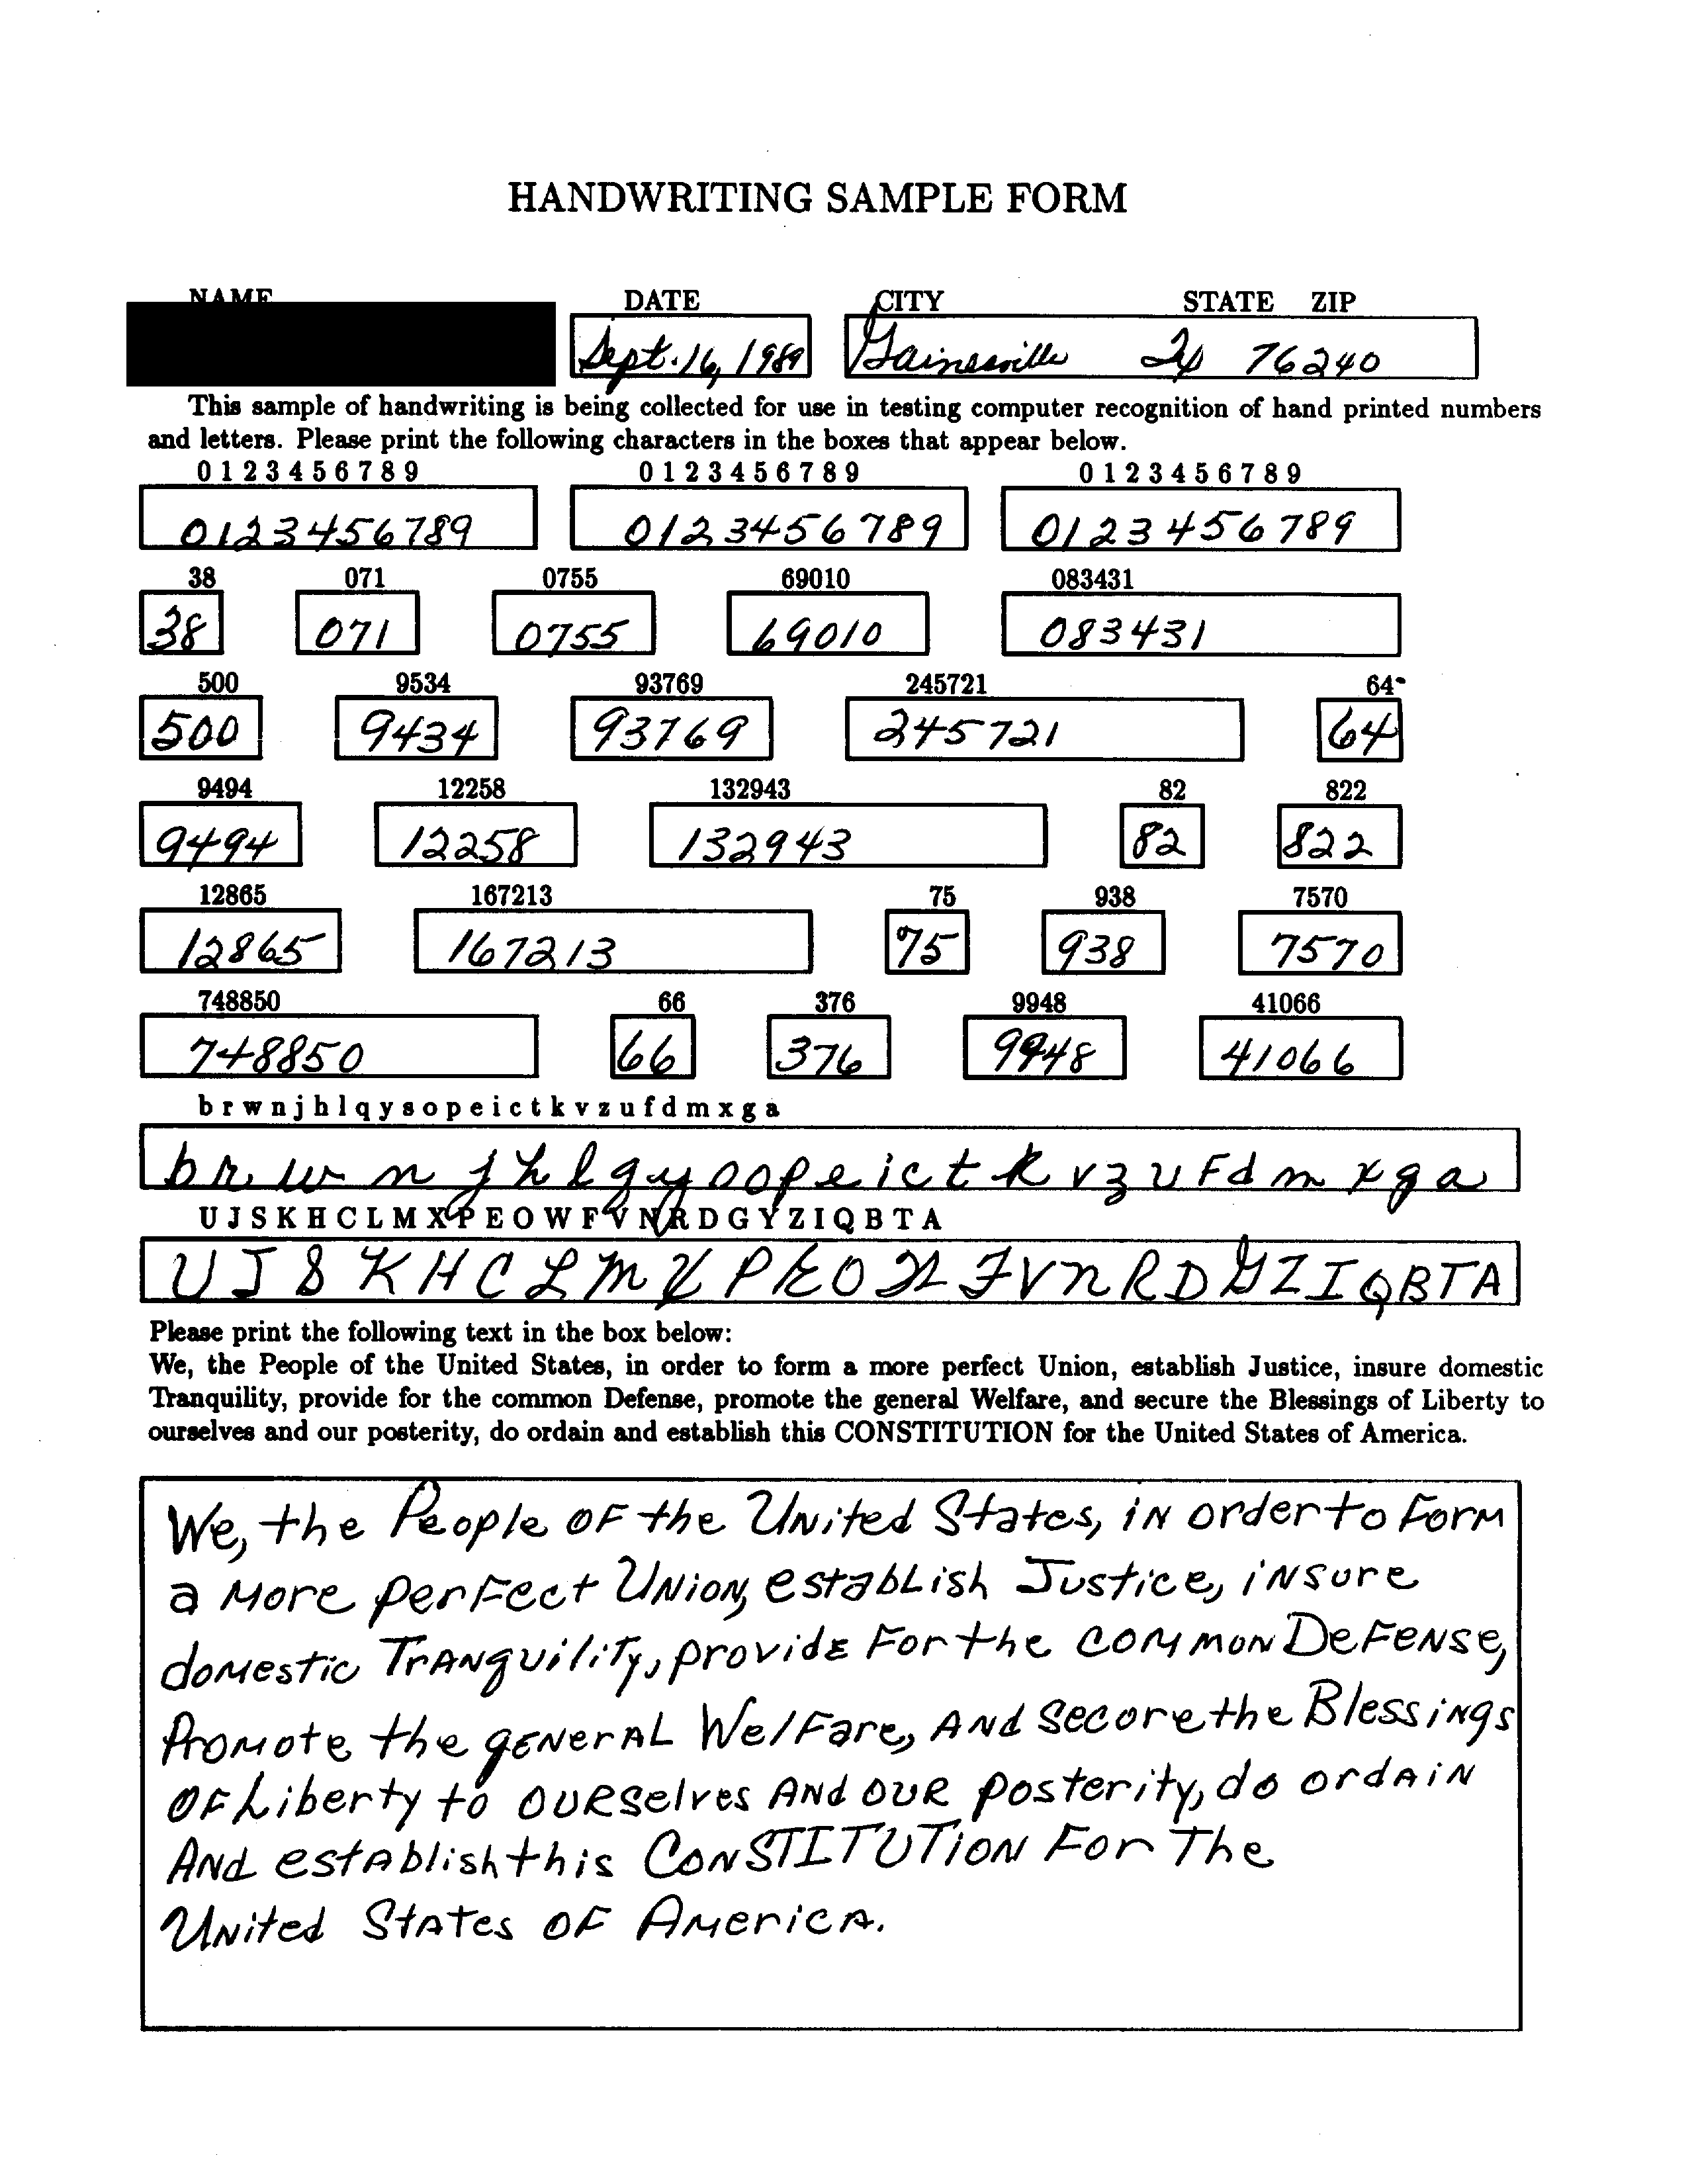 HANDWRITING SAMPLE FORM
NAME DATE CITY STATE ZIP
Sept. 16, 1989 Gainesville Tx 76240
This sample of handwriting is being collected for use in testing computer recognition of hand printed numbers
and letters. Please print the following characters in the boxes that appear below.
0 1 2 3 4 5 6 7 8 9 0 1 2 3 4 5 6 7 8 9 0 1 2 3 4 5 6 7 8 9
0123456789 0123456789 0123456789
38 071 0755 69010 083431
38 071 0755 69010 083431
500 9534 93769 245721 64
500 9434 93769 245721 64
9494 12258 132943 82 822
9494 12258 132943 82 822
12865 167213 75 938 7570
12865 167213 75 938 7570
748850 66 376 9948 41066
748850 66 376 9948 41066
b r w n j h l q y s o p e i c t k v z u f d m x g a
b r w n j h l q y s o p e i c t k v z u F d m x g a
U J S K H C L M X P E O W F V N R D G Y Z I Q B T A
U J S K H C L M X P E O W F V N R D G Y Z I Q B T A
Please print the following text in the box below:
We, the People of the United States, in order to form a more perfect Union, establish Justice, insure domestic
Tranquility, provide for the common Defense, promote the general Welfare, and secure the Blessings of Liberty to
ourselves and our posterity, do ordain and establish this CONSTITUTION for the United States of America.
We, the People OF the United States, iN order to Form
a More perFect UNioN, establish Justice, iNsure
doMestic TrANquility, providE For the coMMoN DeFeNse,
ProMote the geNerAL WelFare, ANd secure the BlessiNgs
OF Liberty to OURselves ANd OUR posterity, do ordAiN
ANd estAblish this CoNSTITUTioN For The
UNited StAtes OF AMericA.